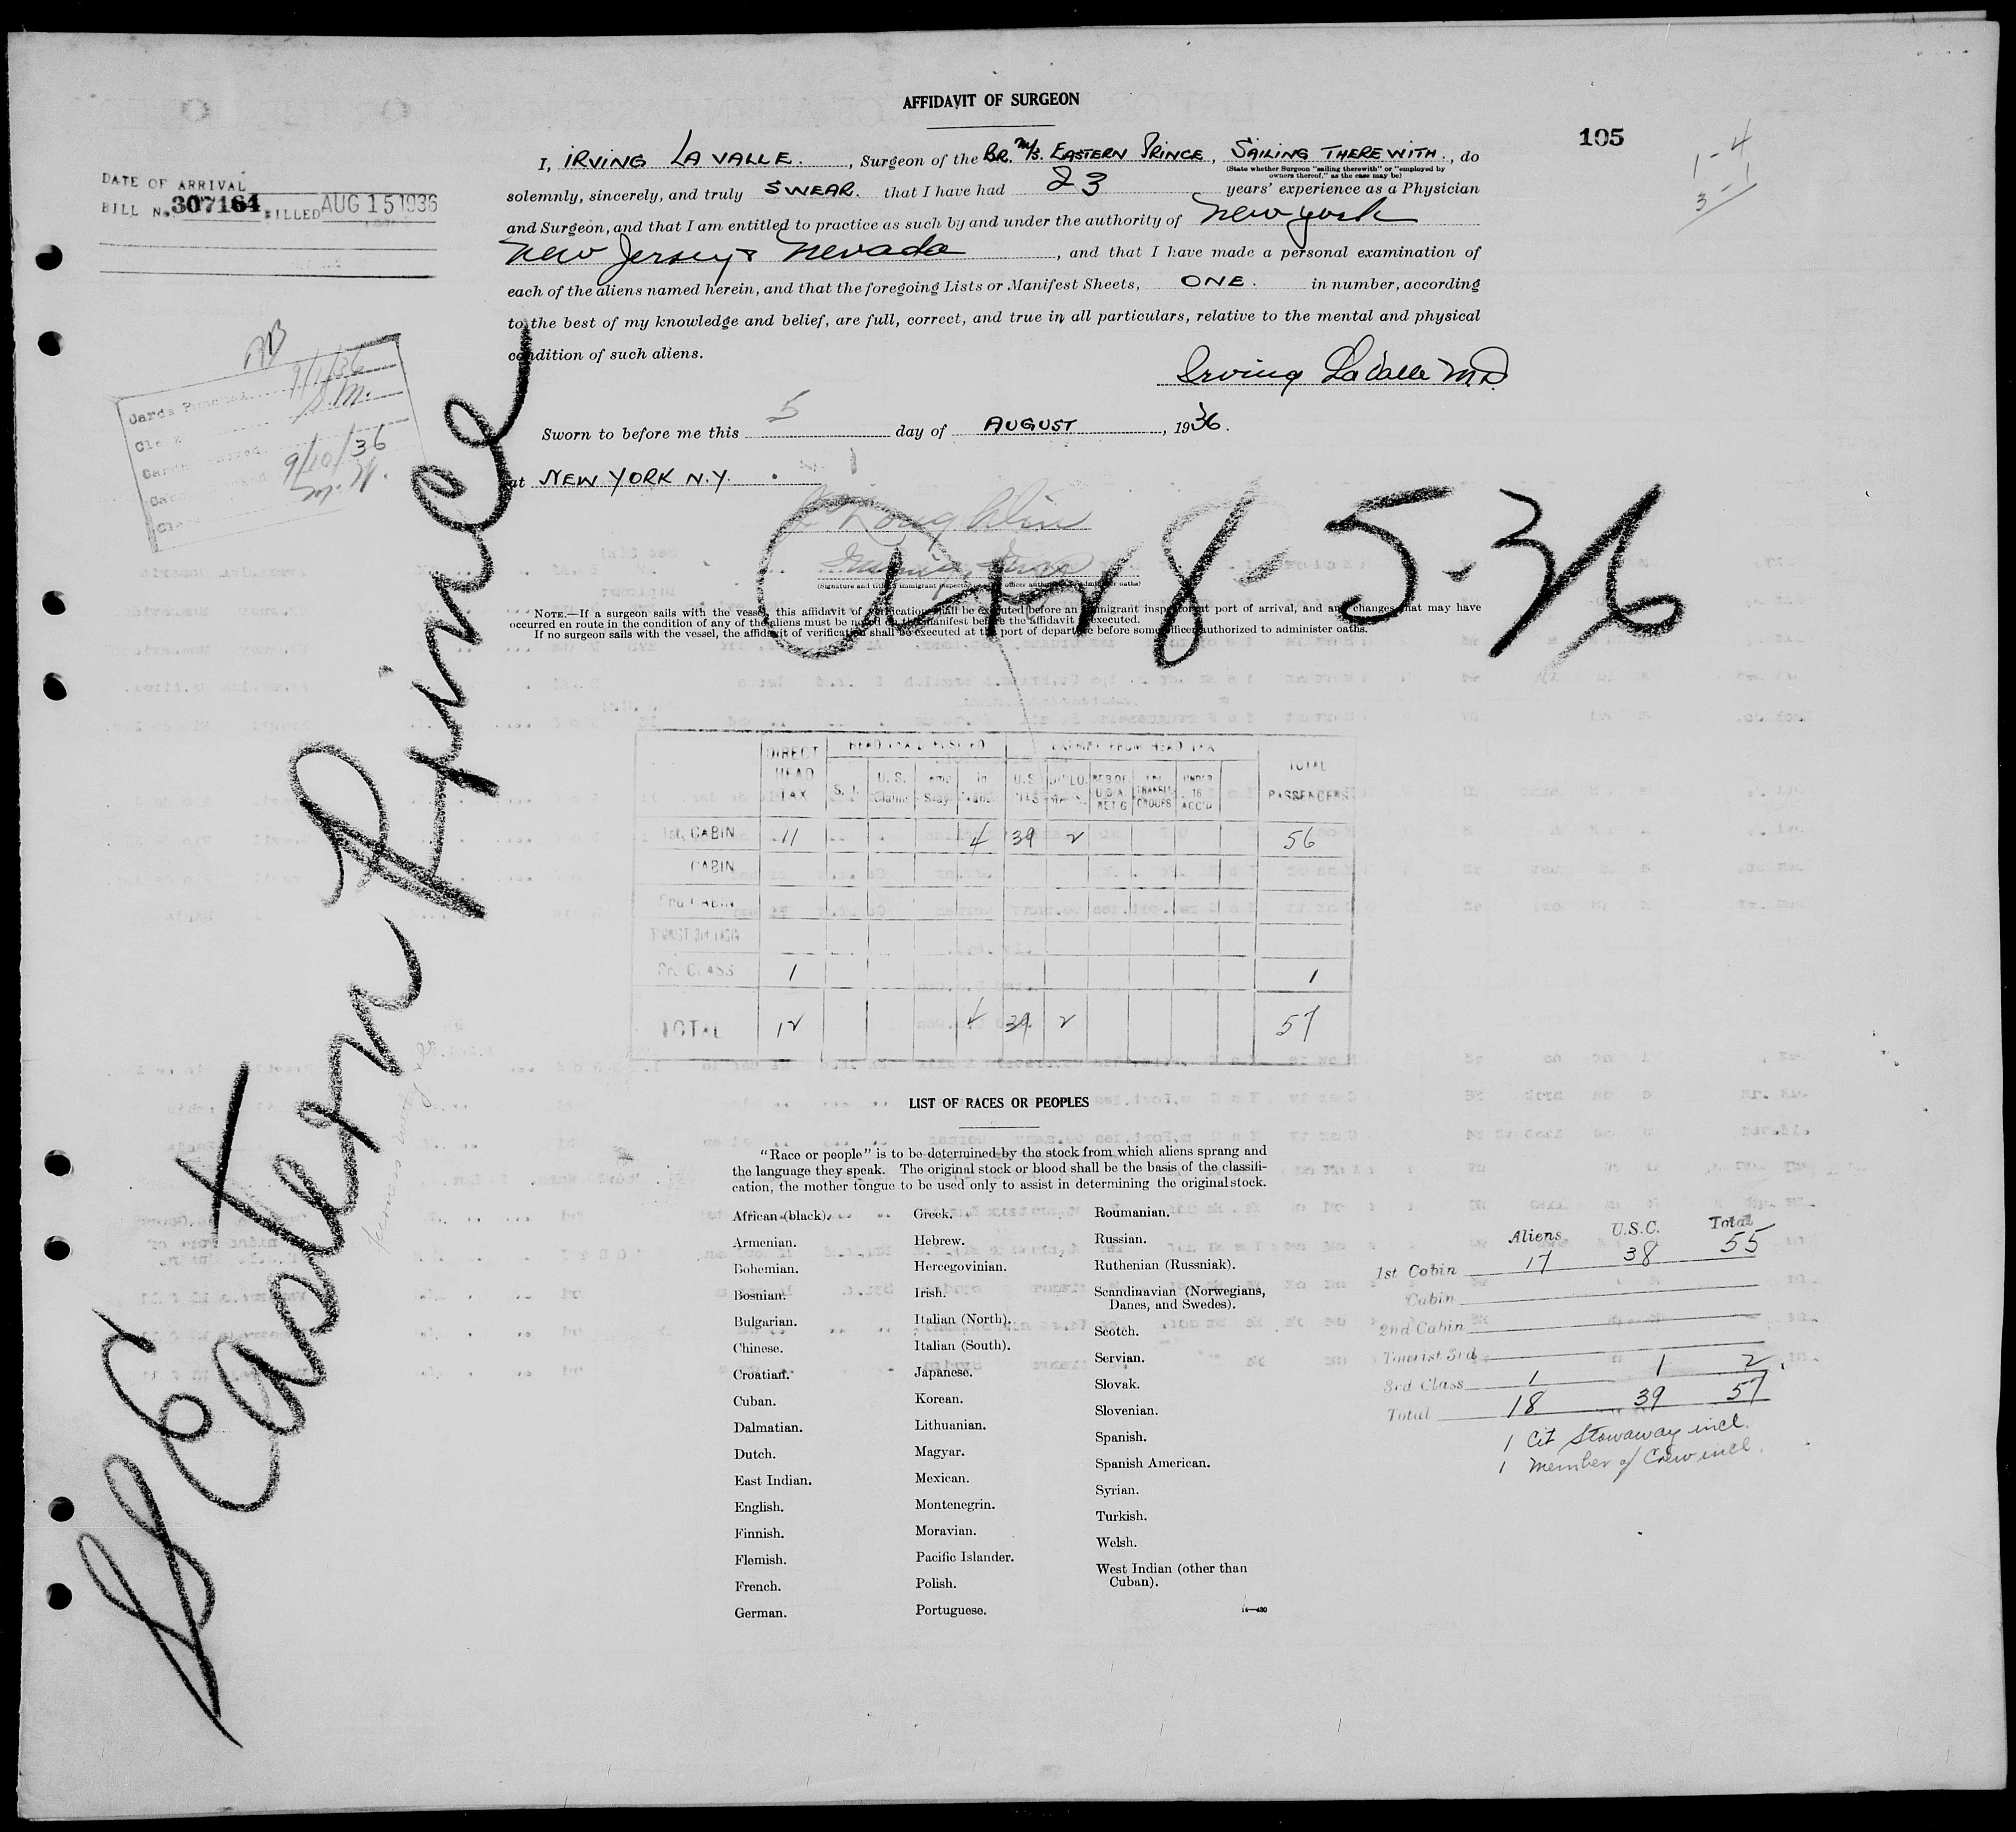 AFFIDAVIT OF SURGEON
105
1-4
3-1
I, IRVING LA VALLE., Surgeon of the BR. M/S. EASTERN PRINCE, SAILING THEREWITH., do
(State whether Surgeon "sailing therewith" or "employed by
owners thereof," as the case may be)
solemnly, sincerely, and truly SWEAR. that I have had 23 years' experience as a Physician
and Surgeon, and that I am entitled to practice as such by and under the authority of New York
New Jersey & Nevada, and that I have made a personal examination of
each of the aliens named herein, and that the foregoing Lists or Manifest Sheets, ONE. in number, according
to the best of my knowledge and belief, are full, correct, and true in all particulars, relative to the mental and physical
condition of such aliens.
Irving LaValle M.D.
Sworn to before me this 5 day of AUGUST, 1936.
at NEW YORK N.Y.
DATE OF ARRIVAL
BILL No. 307164 FILLED AUG 15 1936
Cards Punched 9/1/36
9/10/36
SS Eastern Prince
Arr 8-5-36
(Signature and title of immigrant inspector or officer authorized to administer oaths)
NOTE.—If a surgeon sails with the vessel, this affidavit of verification shall be executed before an immigrant inspector at port of arrival, and any changes that may have
occurred en route in the condition of any of the aliens must be noted on the manifest before the affidavit is executed.
If no surgeon sails with the vessel, the affidavit of verification shall be executed at the port of departure before some officer authorized to administer oaths.
DIRECT HEAD TAX
S. I. U. S. Claim
U.S.
UNDER 16 ACC'D
TOTAL PASSENGERS
1st. CABIN 11 4 39 2 56
CABIN
2nd CABIN
TOURIST 3rd CABIN
3rd CLASS 1 1
TOTAL 12 4 39 2 57
LIST OF RACES OR PEOPLES
"Race or people" is to be determined by the stock from which aliens sprang and
the language they speak. The original stock or blood shall be the basis of the classifi-
cation, the mother tongue to be used only to assist in determining the original stock.
African (black).
Armenian.
Bohemian.
Bosnian.
Bulgarian.
Chinese.
Croatian.
Cuban.
Dalmatian.
Dutch.
East Indian.
English.
Finnish.
Flemish.
French.
German.
Greek.
Hebrew.
Hercegovinian.
Irish.
Italian (North).
Italian (South).
Japanese.
Korean.
Lithuanian.
Magyar.
Mexican.
Montenegrin.
Moravian.
Pacific Islander.
Polish.
Portuguese.
Roumanian.
Russian.
Ruthenian (Russniak).
Scandinavian (Norwegians,
Danes, and Swedes).
Scotch.
Servian.
Slovak.
Slovenian.
Spanish.
Spanish American.
Syrian.
Turkish.
Welsh.
West Indian (other than
Cuban).
14—430
Aliens U.S.C. Total
1st Cabin 17 38 55
Cabin
2nd Cabin
Tourist 3rd
3rd Class 1 1 2
Total 18 39 57
1 Cit Stowaway incl.
1 Member of Crew incl.